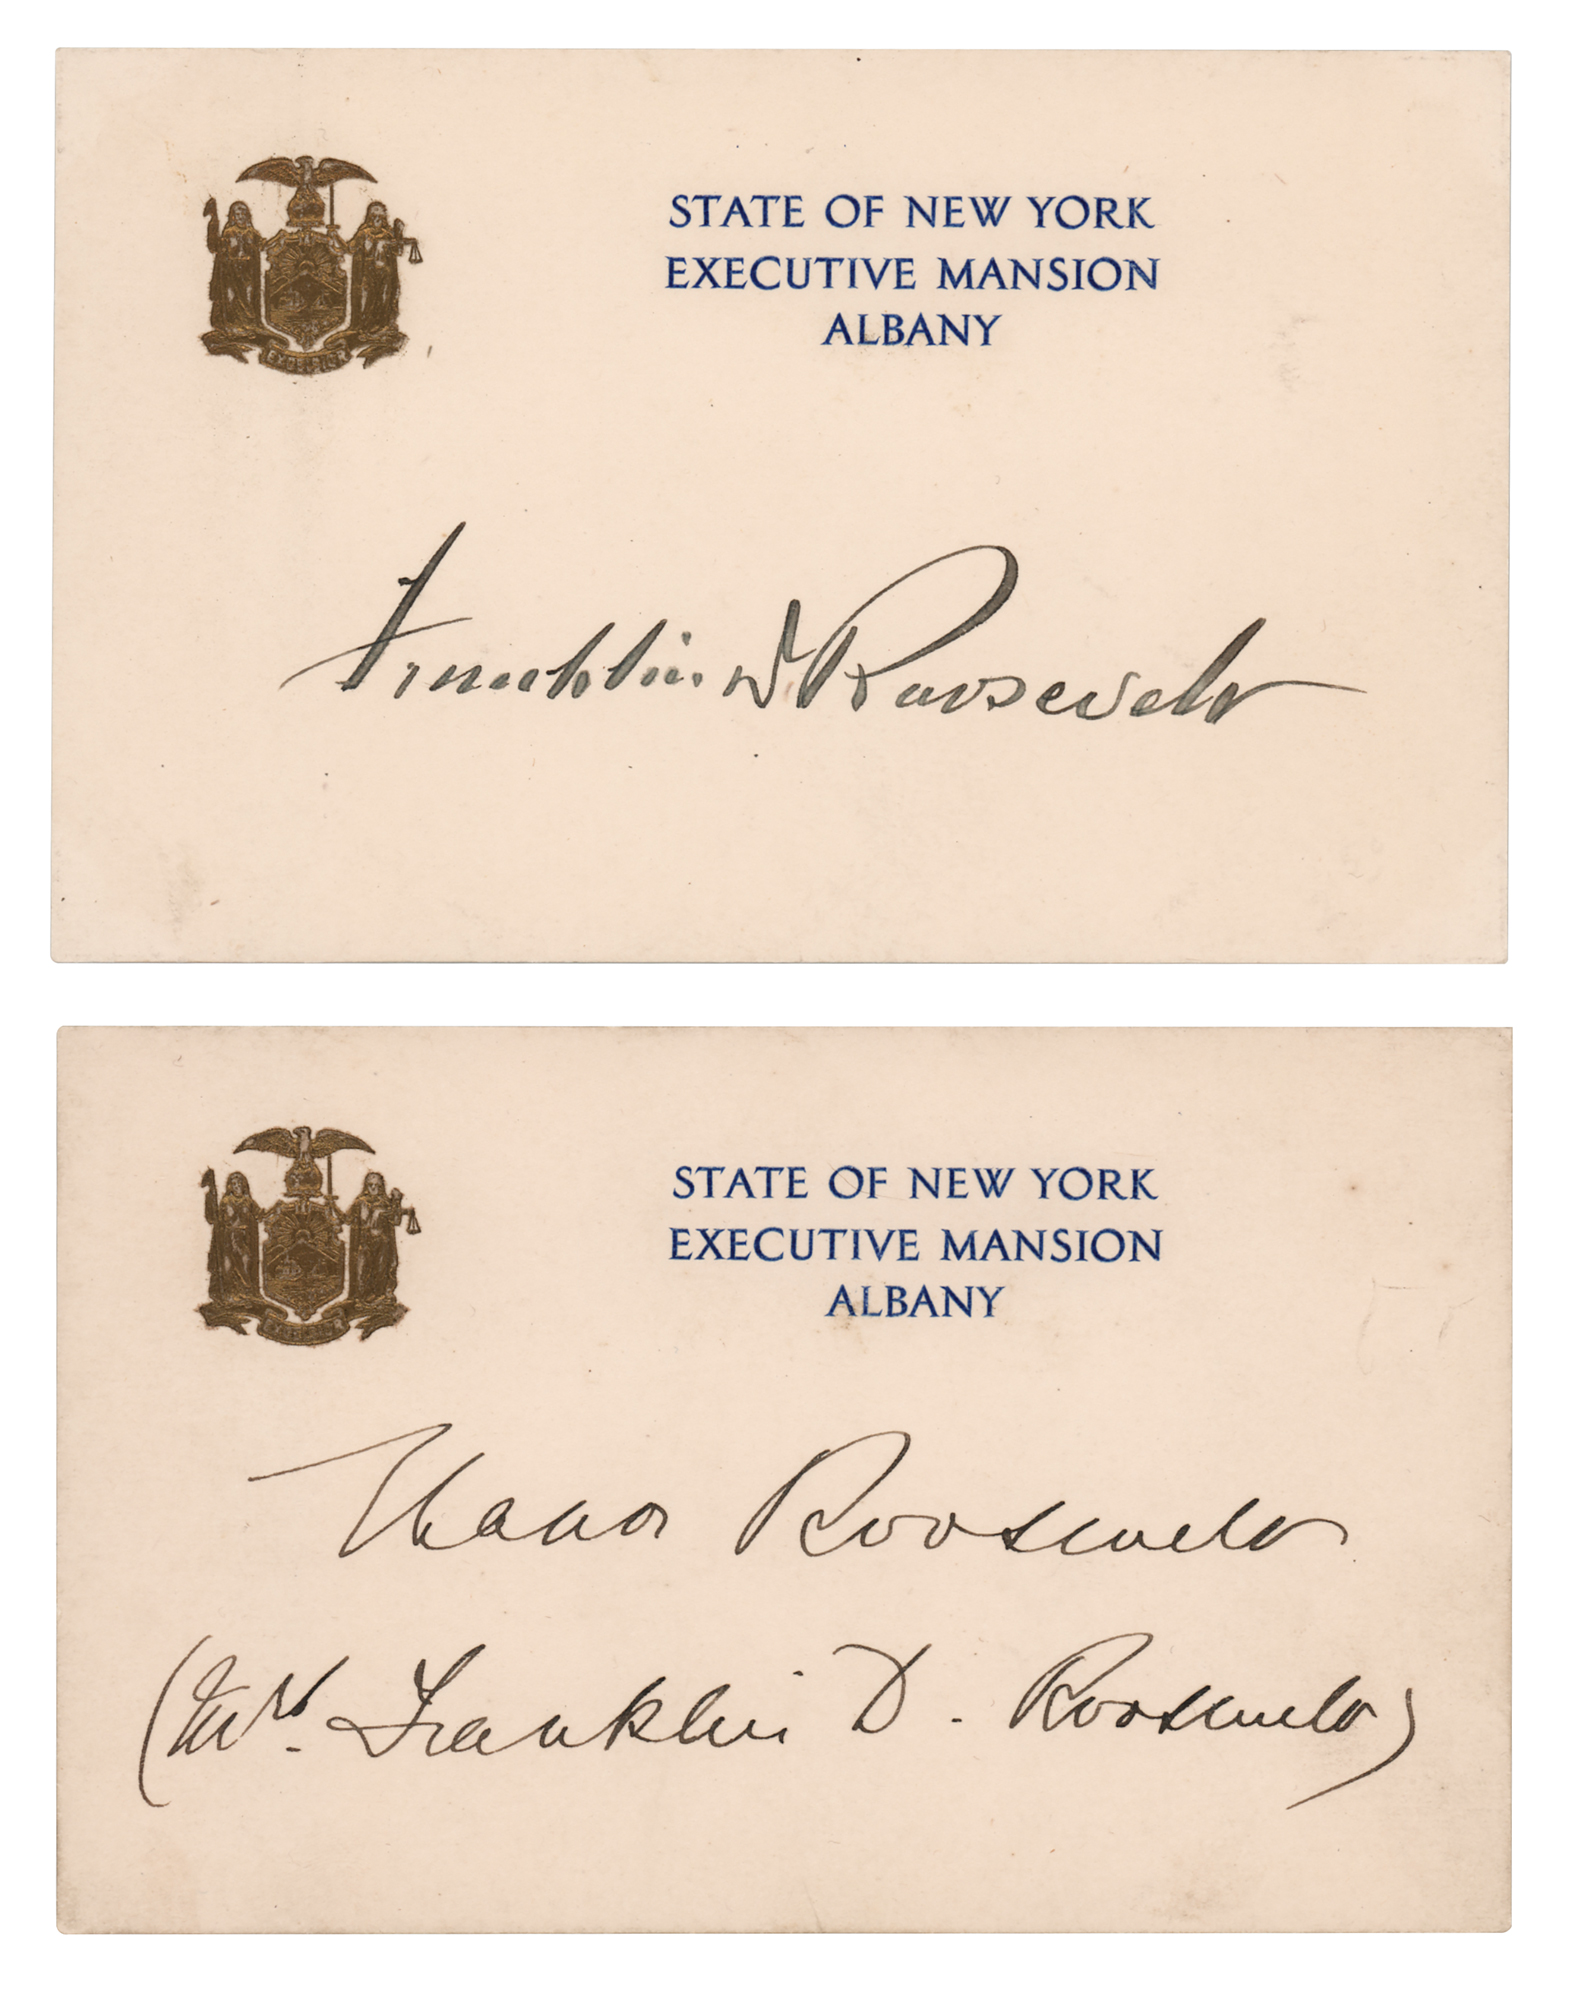 STATE OF NEW YORK
EXECUTIVE MANSION
ALBANY
EXCELSIOR
Franklin D Roosevelt
STATE OF NEW YORK
EXECUTIVE MANSION
ALBANY
EXCELSIOR
Eleanor Roosevelt
(Mrs. Franklin D. Roosevelt)